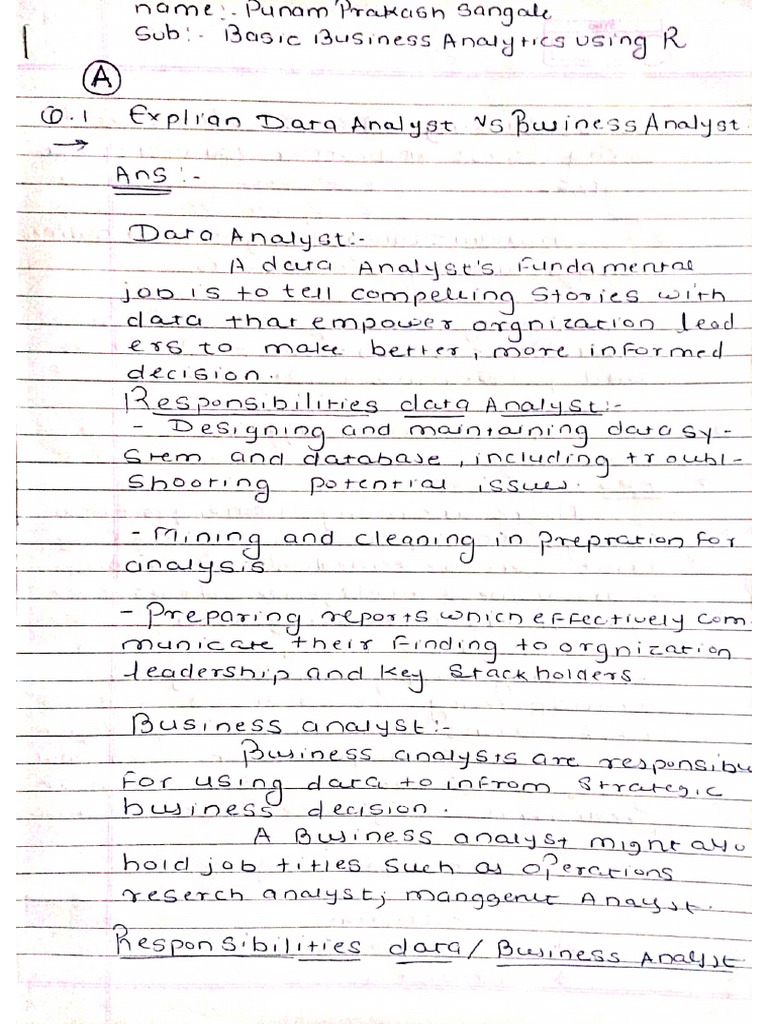 name:- Punam Prakash Sangale
Sub:- Basic Business Analytics using R
A
Q.1 Explian Data Analyst vs Business Analyst
→
Ans :-
Data Analyst:-
A data Analyst's Fundamental
job is to tell compelling Stories with
data that empower orgnization lead
ers to make better, more informed
decision.
Responsibilities data Analyst:-
- Designing and maintaining data sy-
stem and database, including troubl-
shooting potential issues.
- Mining and cleaning in prepration for
analysis
- Preparing reports which effectively com
municate their finding to orgnization
leadership and key stackholders
Business analyst:-
Business analysts are responsibl
for using data to infrom strategic
business decision.
A Business analyst might also
hold job tities such as operations
reserch analyst; Analyst.
Responsibilities data / Business Analyst